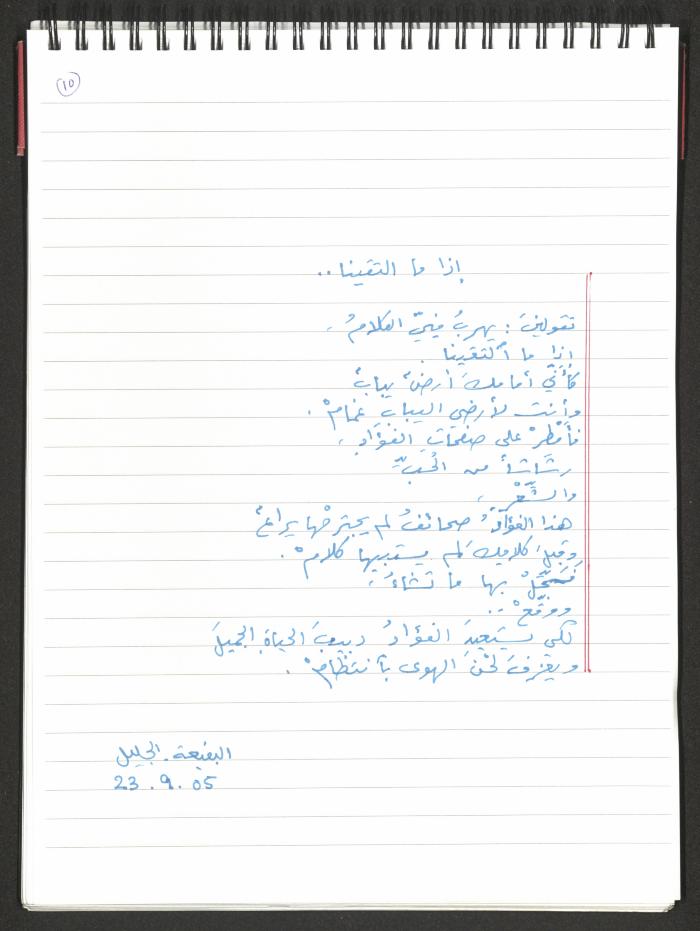 10
إذا ما التقينا..
تقولينَ : يهربُ منيّ الكلامُ .
إذا ما ألتقينا .
كأنّي أمامكَ أرضٌ يبابٌ
وأنت لأرضي اليبابِ غمامْ .
فأمْطرْ على صفحاتِ الفؤادِ ،
رشاشاً من الحُبِّ
والشِّعْرِ ،
هذا الفؤادُ صحائفُ لم يجترحْها يراعٌ
وقبلَ كلامِكَ لم يستبيها كلامْ .
فَسَجِّلْ بها ما تشاءُ ،
ووقّعْ ..
لكي يستعيدَ الفؤادُ دبيبَ الحياةِ الجميلَ
ويعزفَ لحْنَ الهوى بأنتظامْ .
البقيعة . الجليل
23 . 9 . 05